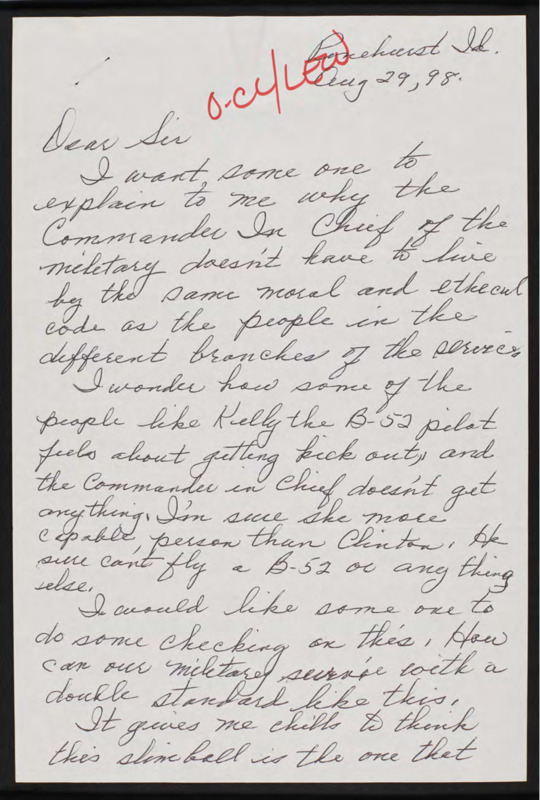 Pinehurst Id.
Aug 29, 98.
O-CL/LEW
Dear Sir
I want some one to
explain to me why the
Commander In Chief of the
miletary doesn't have to live
by the same moral and ethecul
code as the people in the
different branches of the services
I wonder how some of the
people like Kelly the B-52 pilot
feels about getting kick out, and
the Commander in Chief doesn't get
anything. I'm sure she more
capable person than Clinton. He
sure can't fly a B-52 or any thing
else.
I would like some one to
do some checking on this. How
can our miletary survive with a
double standard like this.
It gives me chills to think
this slimball is the one that